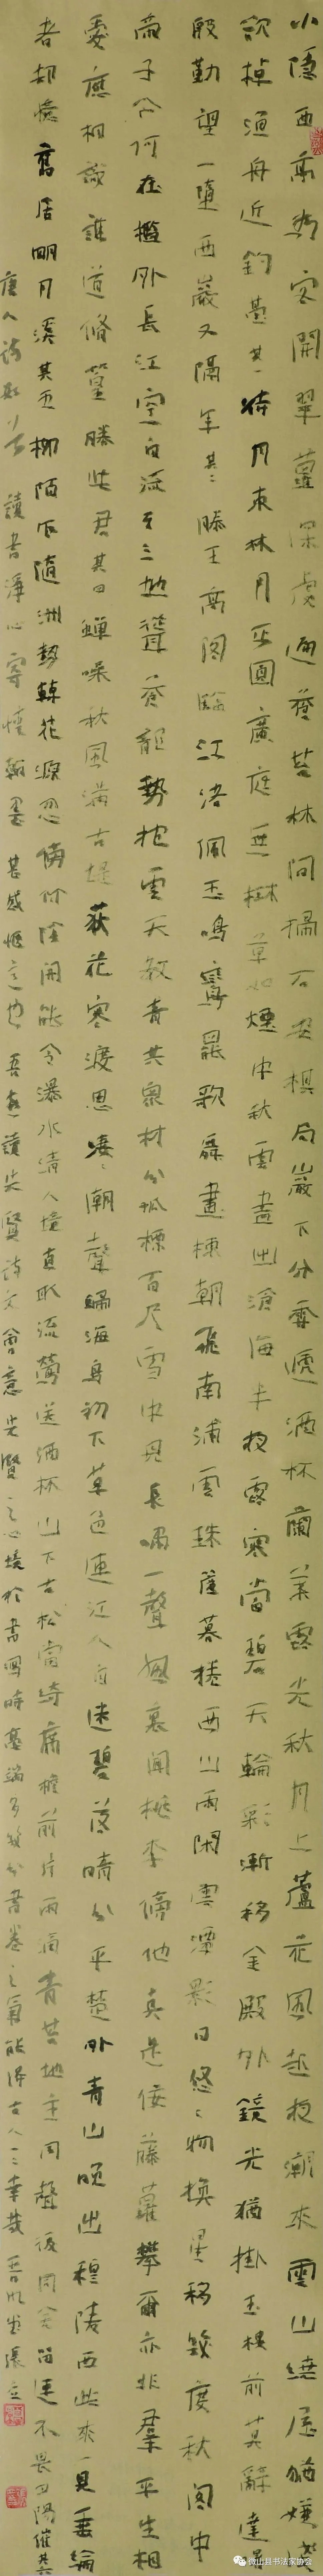 小隱西亭為客開翠蘿深處遍蒼苔林間掃石安棋局巖下分泉遞酒杯蘭葉露光秋月上蘆花風起夜潮來雲山繞屋猶嫌淺
欲棹漁舟近釣臺其一待月東林月正圓廣庭無樹草如煙中秋雲盡出滄海半夜露寒當碧天輪彩漸移金殿外鏡光猶掛玉樓前莫辭達曙
殷勤望一墮西巖又隔年其二滕王高閣臨江渚佩玉鳴鸞罷歌舞畫棟朝飛南浦雲珠簾暮捲西山雨閑雲潭影日悠悠物換星移幾度秋閣中
帝子今何在檻外長江空自流其三地聳蒼龍勢抱雲天教青共眾材分孤標百尺雪中見長嘯一聲風裏聞桃李傍他真是佞藤蘿攀爾亦非群平生相
愛應相識誰道修篁勝此君其四蟬噪秋風滿古堤荻花寒渡思淒淒潮聲歸海鳥初下草色連江人自迷碧落晴分平楚外青山晚出穆陵西此來一見垂綸
者却憶舊居明月溪其五柳陌乍隨洲勢轉花源忽傍竹陰開能令瀑水清人境直取流鶯送酒杯山下古松當綺席檐前片雨滴青苔地主同聲復同舍留連不畏夕陽催其六
唐人詩數首讀書淨心寄情翰墨甚感愜意也吾喜讀先賢詩文會意先賢之心境於書寫時毫端多幾分書卷之氣能得古人一二幸哉
微山县书法家协会